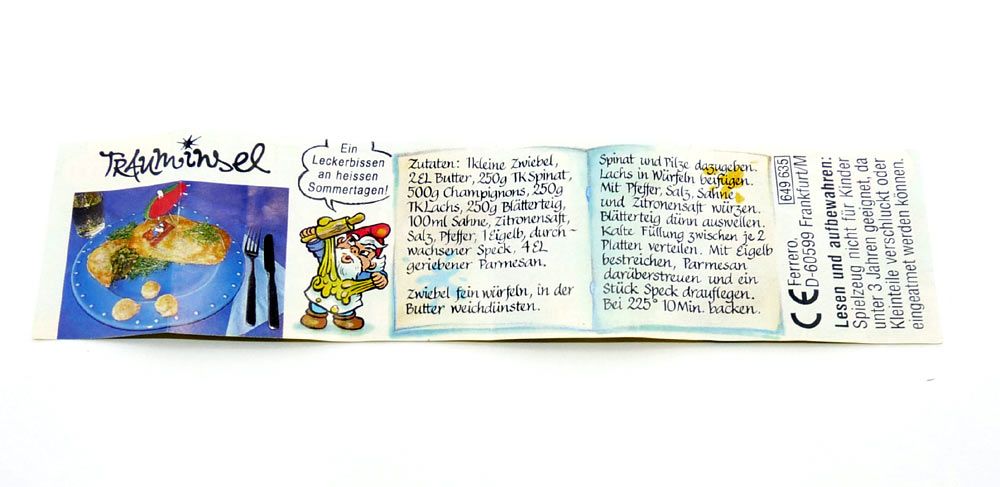 TRAUMinsel
Ein
Leckerbissen
an heissen
Sommertagen!
Zutaten: 1 kleine Zwiebel,
2 EL Butter, 250g TK Spinat,
500g Champignons, 250g
TK Lachs, 250g Blätterteig,
100ml Sahne, Zitronensaft,
Salz, Pfeffer, 1 Eigelb, durch-
wachsener Speck. 4 EL
geriebener Parmesan.
Zwiebel fein würfeln, in der
Butter weichdünsten.
Spinat und Pilze dazugeben.
Lachs in Würfeln beifügen.
Mit Pfeffer, Salz, Sahne
und Zitronensaft würzen.
Blätterteig dünn auswellen.
Kalte Füllung zwischen je 2
Platten verteilen. Mit Eigelb
bestreichen, Parmesan
darüberstreuen und ein
Stück Speck drauflegen.
Bei 225° 10 Min. backen.
649 635
CE Ferrero.
D-60599 Frankfurt/M
Lesen und aufbewahren:
Spielzeug nicht für Kinder
unter 3 Jahren geeignet, da
Kleinteile verschluckt oder
eingeatmet werden können.